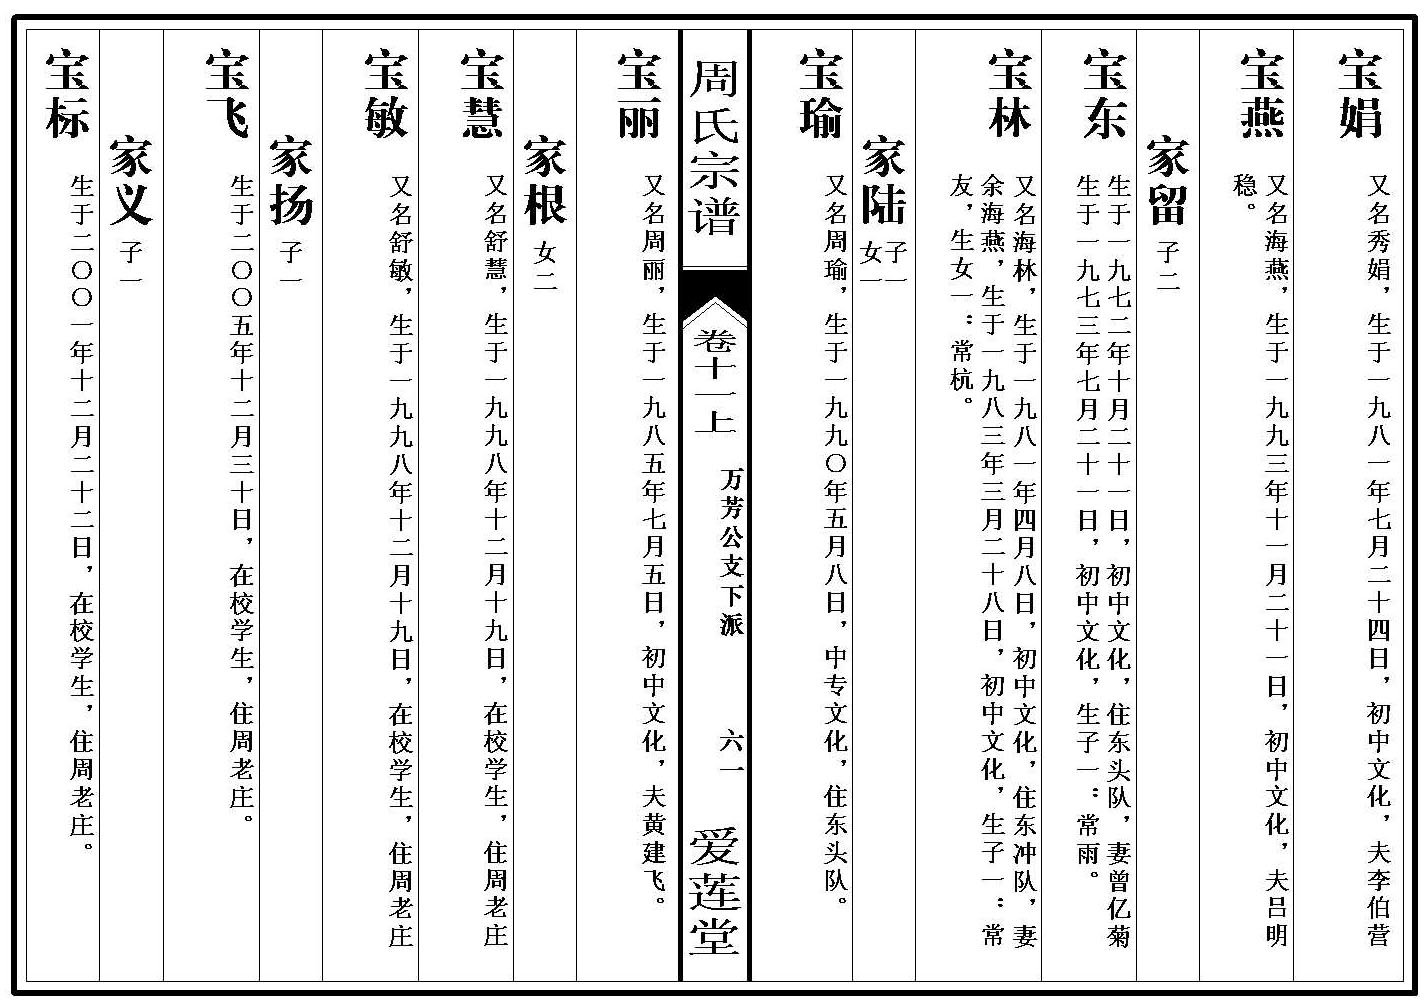 宝娟
又名秀娟，生于一九八一年七月二十四日，初中文化，夫李伯营
宝燕
又名海燕，生于一九九三年十一月二十一日，初中文化，夫吕明
稳。
家留 子二
宝东
生于一九七二年十月二十一日，初中文化，住东头队，妻曾亿菊
生于一九七三年七月二十一日，初中文化，生子一：常雨。
宝林
又名海林，生于一九八一年四月八日，初中文化，住东冲队，妻
余海燕，生于一九八三年三月二十八日，初中文化，生子一：常
友，生女一：常杭。
家陆 子一
女一
宝瑜
又名周瑜，生于一九九〇年五月八日，中专文化，住东头队。
周氏宗谱
卷十一上
万芳公支下派
六一
爱莲堂
宝丽
又名周丽，生于一九八五年七月五日，初中文化，夫黄建飞。
家根 女二
宝慧
又名舒慧，生于一九九八年十二月十九日，在校学生，住周老庄
宝敏
又名舒敏，生于一九九八年十二月十九日，在校学生，住周老庄
家扬 子一
宝飞
生于二〇〇五年十二月三十日，在校学生，住周老庄。
家义 子一
宝标
生于二〇〇一年十二月二十二日，在校学生，住周老庄。